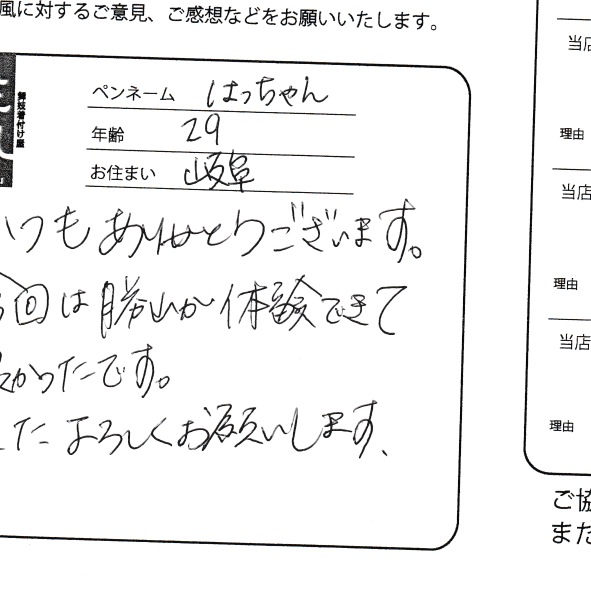 風に対するご意見、ご感想などをお願いいたします。
舞妓着付け屋
ペンネーム はっちゃん
年齢 29
お住まい 岐阜
いつもありがとうございます。
今回は勝山が体験できて
良かったです。
またよろしくお願いします、
当店
理由
当店
理由
当店
理由
ご協
また